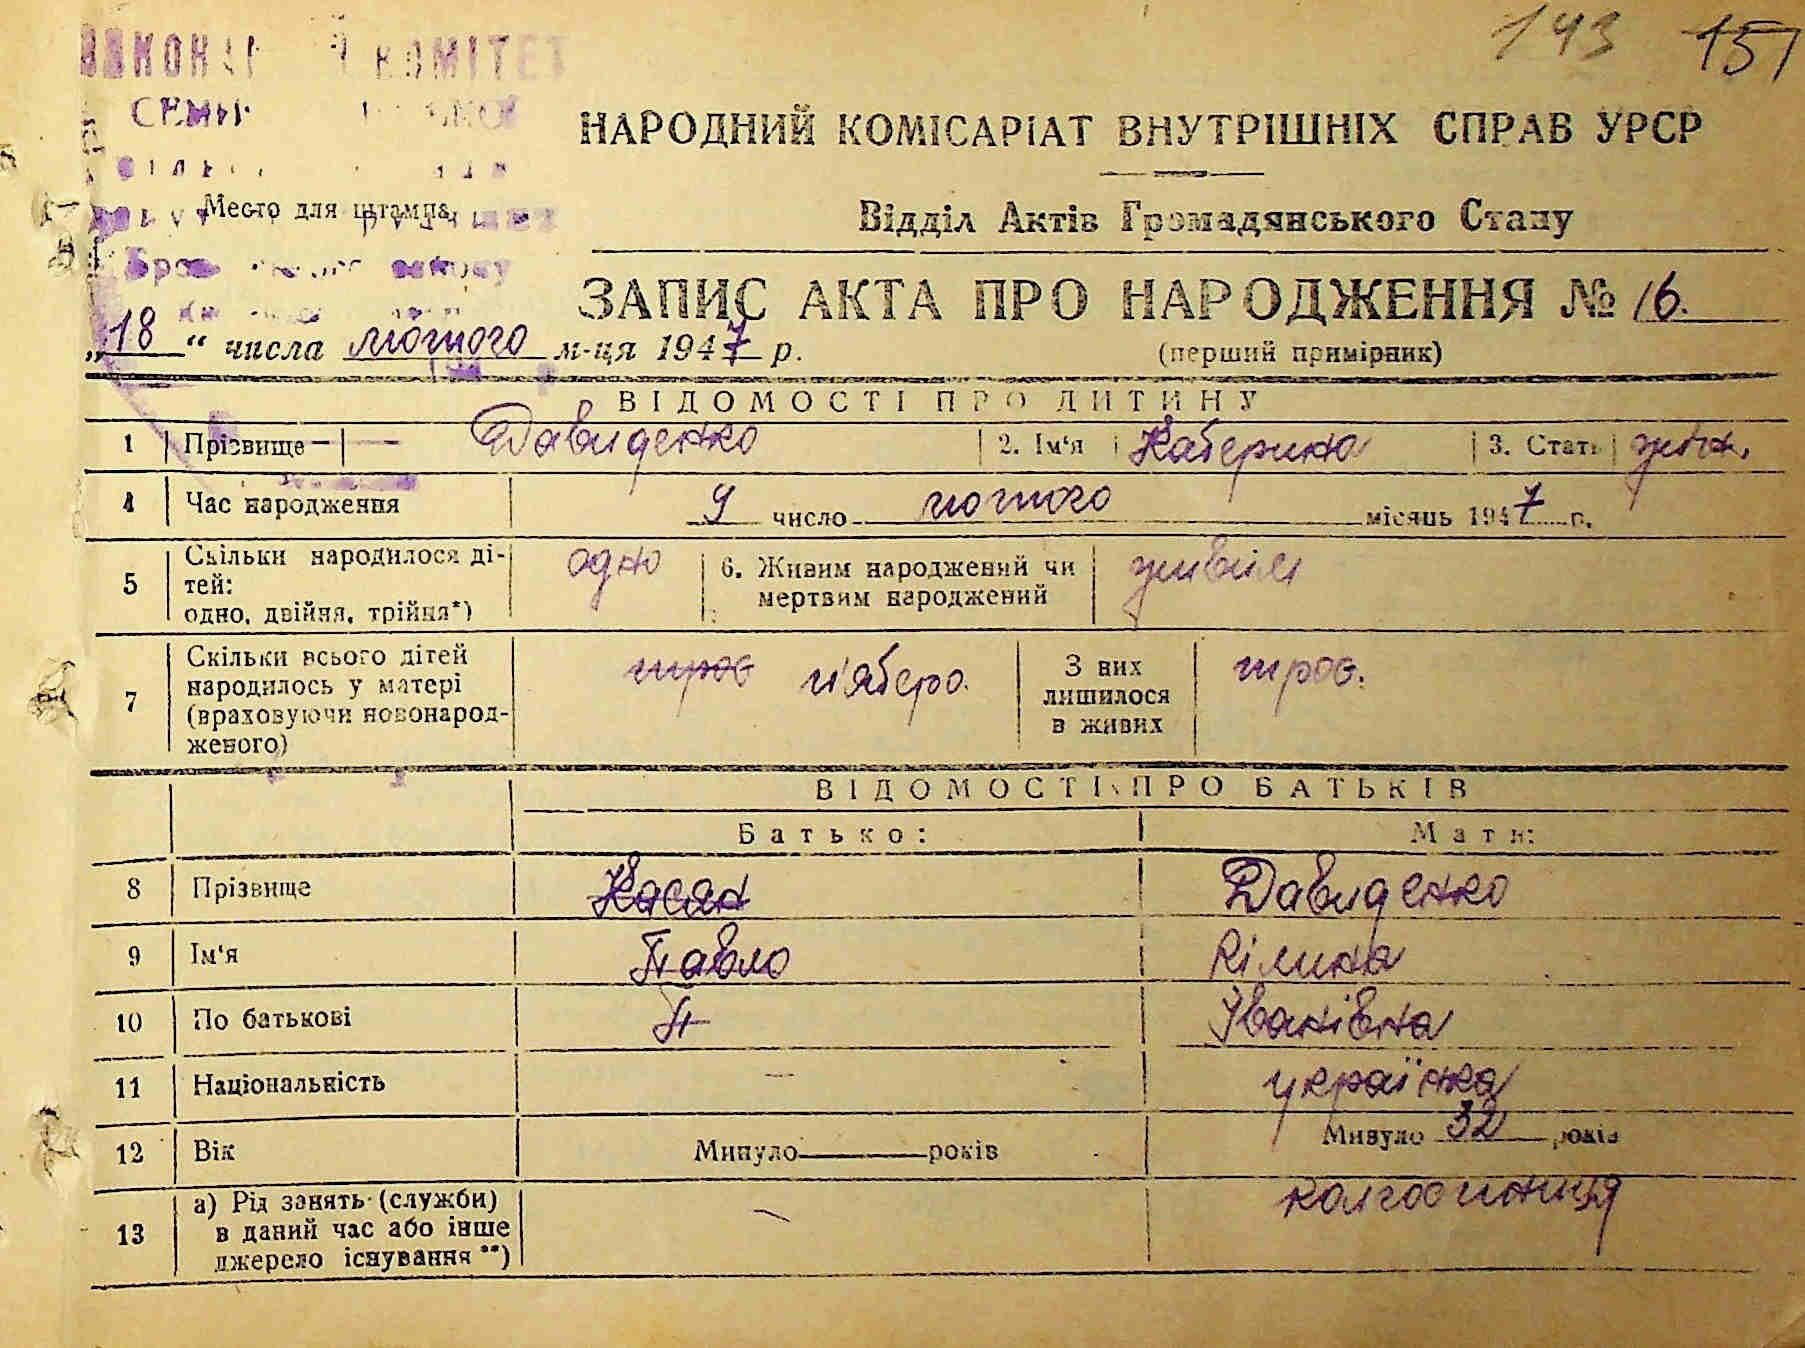 143 151
КОМІТЕТ
НАРОДНИЙ КОМІСАРІАТ ВНУТРІШНІХ СПРАВ УРСР
Место для штампа
Відділ Актів Громадянського Стану
ЗАПИС АКТА ПРО НАРОДЖЕННЯ № 16.
„18“ числа лютого м-ця 1947 р.
(перший примірник)
ВІДОМОСТІ ПРО ДИТИНУ
1 Прізвище — Давиденко 2. Ім'я Катерина 3. Стать жіноч.
4 Час народження 9 число лютого місяць 1947 р.
5 Скільки народилося ді-
тей:
одно, двійня, трійня*) одно 6. Живим народжений чи
мертвим народжений живим
7 Скільки всього дітей
народилось у матері
(враховуючи новонарод-
женого) троє п'ятеро. З них
лишилося
в живих троє.
ВІДОМОСТІ ПРО БАТЬКІВ
Батько: Мати:
8 Прізвище Касян Давиденко
9 Ім'я Павло Килина
10 По батькові П Іванівна
11 Національність — українка
12 Вік Минуло років Минуло 32 років
13 а) Рід занять (служби)
в даний час або інше
джерело існування **) — колгоспниця